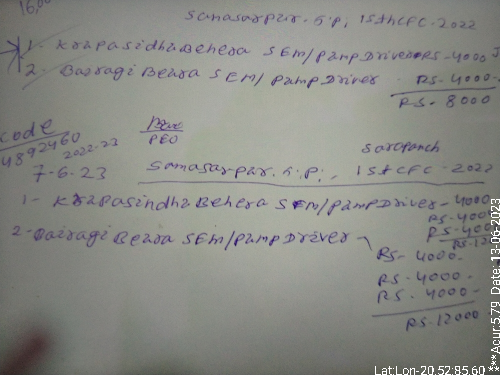 16,00
Samasarpur. G.P; 15thCFC-2022
1- KrapasidhuBehera SEM/Pump Driver RS-4000
2. Bairagi Behra SEM/ Pump Driver - RS-4000-
RS- 8000
Code
4892460
2022-23
7-6-23
PEO
Sarapanch
Samasarpur. G.P;, 15thCFC-2022
1- KrapasindhuBehera SEM/Pump Driver - 4000
RS-4000
RS-4000
RS-12000
2-Bairagi Behra SEM/Pump Driver-
RS- 4000-
RS- 4000-
RS- 4000-
RS-12000
Lat:Lon-20.52:85.60 ***Acur:5.79 Date: 13-06-2023